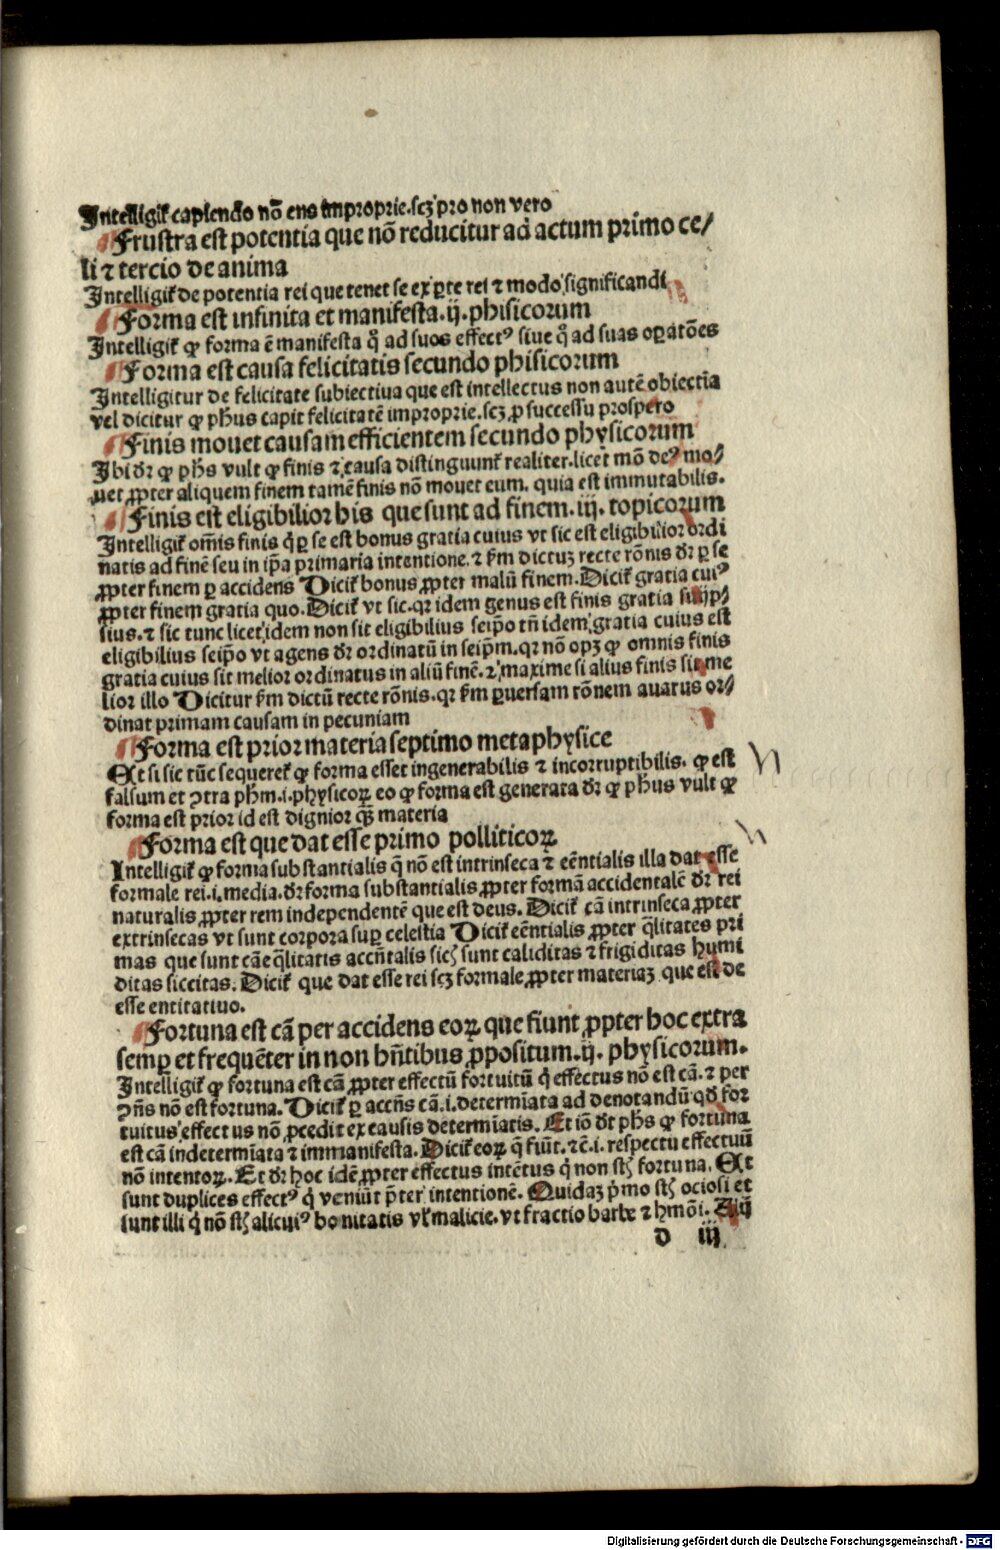 Intelligit̃ capiendo nõ ens improprie.scꝫ pro non vero
Frustra est potentia que nõ reducitur ad actum primo ce/
li ⁊ tercio de anima
Intelligit̃ de potentia rei que tenet se ex ꝑte rei ⁊ modo significandi
Forma est infinita et manifesta.ij.phisicorum
Intelligit̃ ꝙ forma ẽ manifesta q̃ ad suos effectꝰ siue q̃ ad suas oꝑatões
Forma est causa felicitatis secundo phisicorum
Intelligitur de felicitate subiectiua que est intellectus non autẽ obiectiua
vel dicitur ꝙ ph̃us capit felicitatẽ improprie.scꝫ ꝓ successu prospero
Finis mouet causam efficientem secundo physicorum
Ibi dr̃ ꝙ ph̃s vult ꝙ finis ⁊ causa distinguunt̃ realiter.licet mõ deꝰ mo/
uet ꝓpter aliquem finem tamẽ finis nõ mouet eum. quia est immutabilis.
Finis est eligibilior his que sunt ad finem.iij. topicorum
Intelligit̃ om̃is finis q̇ ꝑ se est bonus gratia cuius vt sic est eligibilior ordi
natis ad finẽ seu in ip̃a primaria intentione.⁊ s̃m dictuꝫ recte rõnis dr̃ ꝑ se
ꝓpter finem ꝑ accidens Dicit̃ bonus ꝓpter malũ finem.Dicit̃ gratia cuiꝰ
ꝓpter finem gratia quo.Dicit̃ vt sic.qꝛ idem genus est finis gratia suijp/
sius.⁊ sic tunc licet idem non sit eligibilius seip̃o tñ idem gratia cuius est
eligibilius seip̃o vt agens dr̃ ordinatũ in seip̃m.qꝛ nõ opꝫ ꝙ omnis finis
gratia cuius sit melior ordinatus in aliũ finẽ.⁊ maxime si alius finis sit me
lior illo Dicitur s̃m dictũ recte rõnis.qꝛ s̃m ꝑuersam rõnem auarus or/
dinat primam causam in pecuniam
Forma est prior materia septimo metaphysice
Et si sic tũc sequeret̃ ꝙ forma esset ingenerabilis ⁊ incorruptibilis. ꝙ est
falsum et ꝯtra ph̃m.i.physicoꝝ eo ꝙ forma est generata dr̃ ꝙ ph̃us vult ꝙ
forma est prior id est dignior qꝫ̃ materia
Forma est que dat esse primo polliticoꝝ
Intelligit̃ ꝙ forma substantialis q̃ nõ est intrinseca ⁊ eẽntialis illa dat esse
formale rei.i.media.dr̃ forma substantialis ꝓpter formã accidentalẽ dr̃ rei
naturalis ꝓpter rem independentẽ que est deus. Dicit̃ cã intrinseca ꝓpter
extrinsecas vt sunt corpora suꝑ celestia Dicit̃ eẽntialis ꝓpter q̃litates pri
mas que sunt cãe q̃litatis accñtalis sicꝫ sunt caliditas ⁊ frigiditas humi
ditas siccitas. Dicit̃ que dat esse rei scꝫ formale ꝓpter materiaꝫ que est de
esse entitatiuo.
Fortuna est cã per accidens eoꝝ que fiunt ꝓpter hoc extra
semꝑ et frequẽter in non hñtibus ꝓpositum.ij. physicorum.
Intelligit̃ ꝙ fortuna est cã ꝓpter effectũ fortuitũ q̇ effectus nõ est cã.⁊ per
ꝯñs nõ est fortuna. Dicit̃ ꝑ accñs cã.i.determĩata ad denotandũ qd̃ for
tuitus effectus nõ ꝓcedit ex causis determĩatis. Et iõ dr̃ ph̃s ꝙ fortuna
est cã indetermĩata ⁊ immanifesta. Dicit̃ eoꝝ q̃ fiũt.⁊c̃.i. respectu effectuũ
nõ intentoꝝ. Et dr̃ hoc idẽ ꝓpter effectus intẽtus q̇ non st̃ fortuna. Et
sunt duplices effectꝰ q̇ veniũt p̃ter intentionẽ. Quidaꝫ p̃mo st̃ ociosi et
sunt illi q̇ nõ st̃ alicuiꝰ bonitatis vl̃ malicie.vt fractio barbe ⁊ hmõi. Alij
d iij